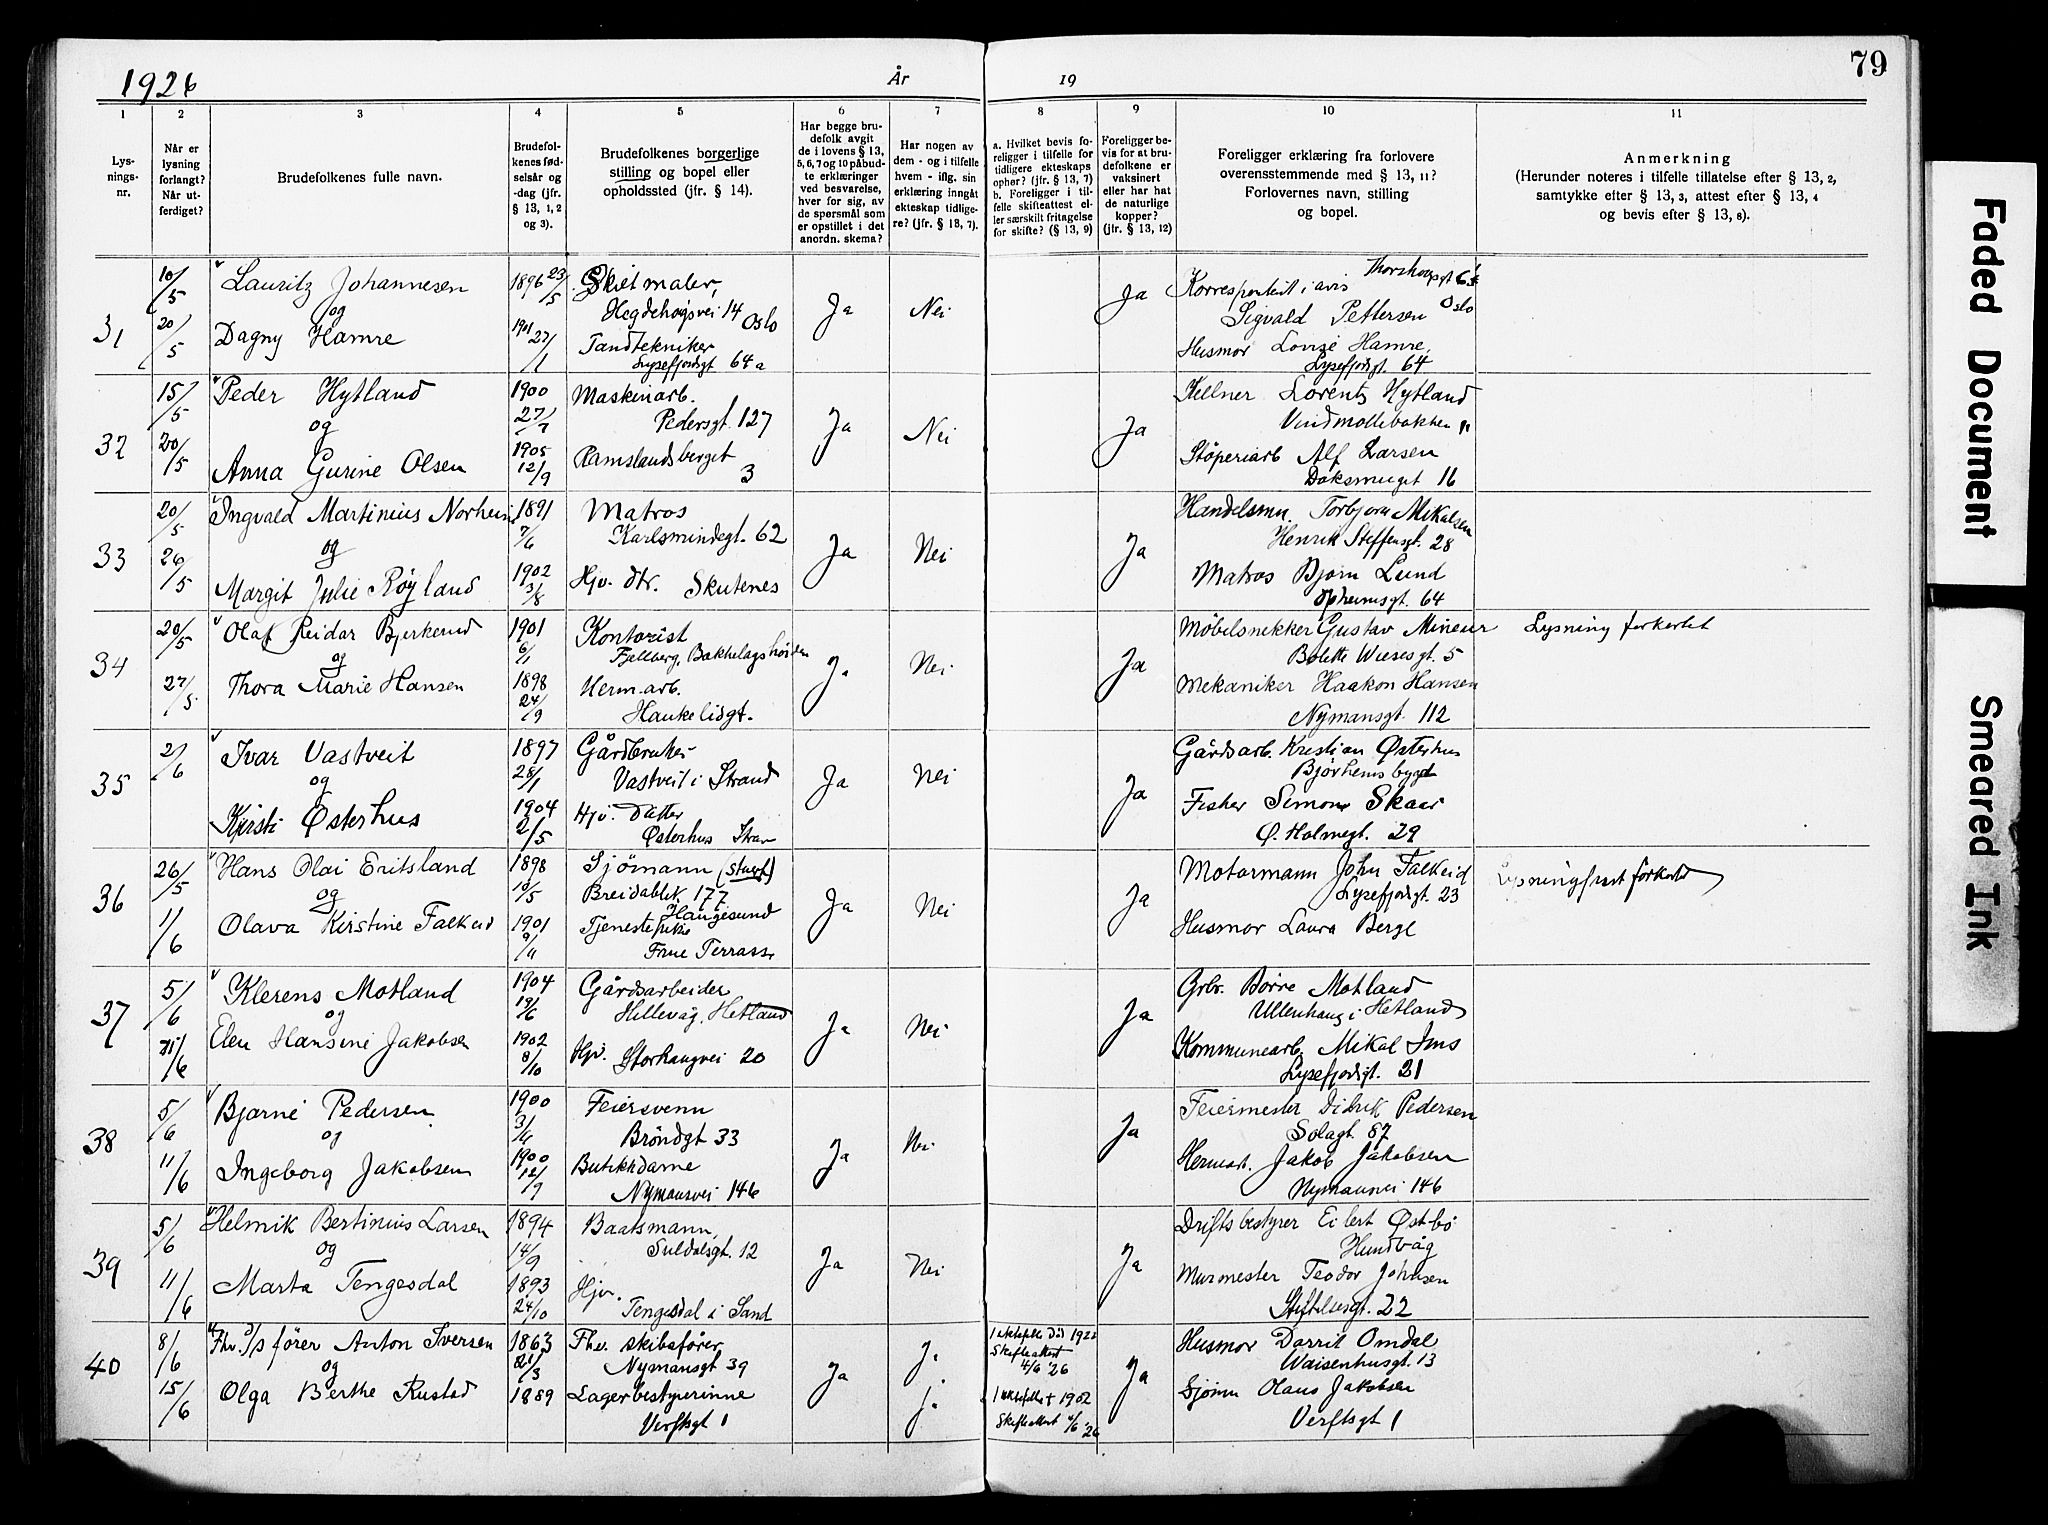 1926 År 19 79
1 2 3 4 5 6 7 8 9 10 11
Lysnings-nr.
Når er lysning forlangt? Når utferdiget?
Brudefolkenes fulle navn.
Brudefolkenes fødselsår og -dag (jfr. § 13, 1, 2 og 3).
Brudefolkenes borgerlige stilling og bopel eller opholdssted (jfr. § 14).
Har begge brudefolk avgit de i lovens § 13, 5, 6, 7 og 10 påbudte erklæringer ved besvarelse, hver for sig, av de spørsmål som er opstillet i det anordn. skema?
Har nogen av dem - og i tilfelle hvem - iflg. sin erklæring inngått ekteskap tidligere? (jfr. § 13, 7).
a. Hvilket bevis foreligger i tilfelle for tidligere ekteskaps opher? (jfr. § 13, 7) b. Foreligger i tilfelle skifteattest eller særskilt fritagelse for skifte? (§ 13, 9)
Foreligger bevis for at brudefolkene er vaksinert eller har hat de naturlige kopper? (jfr. § 13, 12)
Foreligger erklæring fra forlovere overensstemmende med § 13, 11? Forlovernes navn, stilling og bopel.
Anmerkning (Herunder noteres i tilfelle tillatelse efter § 13, 2, samtykke efter § 13, 3, attest efter § 13, 4 og bevis efter § 13, 8).
31 10/5 20/5
Lauritz Johannesen
og
Dagny Hamre
1896 23/5
1901 27/1
Skiltmaler,
Hegdehogsvei 14 Oslo
Tandtekniker
Lysefjordsgt 64a
Ja Nei Ja
Korrespondent i avis
Sigvald Pettersen Oslo
Husmor Lovise Hamre,
Lysefjordgt. 64
32 15/5 20/5
Peder Hytland
og
Anna Gurine Olsen
1900 27/7
1905 12/9
Maskinarb.
Pedersgt. 127
Ramslandsberget
3
Ja Nei Ja
Kellner Lorentz Hytland
Vindmollebakken 11
Støperiarb Alf Larsen
Doksmuget 16
33 20/5 26/5
Ingvald Martinius Norheim
og
Margit Julie Røyland
1891 7/6
1902 3/8
Matros
Karlsmindegt. 62
Hjv. dtr. Skutenes
Ja Nei Ja
Handelsmn. Torbjorn Mikalsen
Henrik Steffensgt. 28
Matros Bjorn Lund
Opheimsgt. 64
34 20/5 27/5
Olaf Reidar Bjerkerud
og
Thora Marie Hansen
1901 6/1
1898 24/9
Kontorist
Fjellberg, Bækkelagshøiden
Herm.arb.
Haukelidgt.
Ja Nei Ja
Møbelsnekker Gustav Mineur
Bolette Wiesesgt. 5
Mekaniker Haakon Hansen
Nymansgt. 112
Lysning forkortet
35 2/6
Ivar Vastveit
og
Kjirsti Østerhus
1897 28/1
1904 2/5
Gårdbruker
Vastveit i Strand
Hjv. Datter
Østerhus Stran
Ja Nei Ja
Gårdsarb. Kristian Østerhus
Bjørheimsbygd
Fisker Simon Skaar
Ø. Holmegt. 29
36 26/5 11/6
Hans Olai Eritsland
og
Olava Kirstine Falkeid
1898 10/5
1901 9/11
Sjømann (stuert)
Breidablik 177
Haugesund
Tjenestepike
Frue Terrasse
Ja Nei Ja
Motormann John Falkeid
Lysefjordgt. 23
Husmor Laura Berge
Lysningsfrist forkortet
37 5/6 11/6
Klerens Motland
og
Elen Hansine Jakobsen
1904 19/6
1902 8/10
Gårdsarbeider
Hillevåg, Hetland
Hjv. Storhaugvei 20
Ja Nei Ja
Grbr. Børre Motland
Ullenhaug i Hetland
Kommunearb. Mikal Ims
Lysefjordgt. 21
38 5/6 11/6
Bjarne Pedersen
og
Ingeborg Jakobsen
1900 3/4
1900 12/7
Feiersvenn
Brøndgt 33
Butikkdame
Nymansvei 146
Ja Nei Ja
Feiermester Didrik Pedersen
Solagt. 87
Hermarb. Jakob Jakobsen
Nymansvei 146
39 5/6 11/6
Helmik Bertinius Larsen
og
Marta Tengesdal
1894 14/9
1893 24/10
Baatsmann,
Suldalsgt. 12
Hjv.
Tengesdal i Sand
Ja Nei Ja
Driftsbestyrer Eilert Østbø
Hundvåg
Murmester Teodor Johnsen
Stiftelsesgt. 22
40 8/6 15/6
Fhv. D/S fører Anton Iversen
og
Olga Berthe Rustad
1863 21/3
1889
Fhv. skibsfører
Nymansgt 39
Lagerbestyrerinne
Verftsgt 1
Ja Ja Ja
1 ektefelle død 1922
Skifteattest
4/6 '26
1 ektefelle † 1902
Skifteattest 4/6 '26
Ja
Husmor Dorrit Omdal
Waisenhusgt. 13
Sjømn Olaus Jakobsen
Verftsgt 1
Faded Document
Smeared Ink